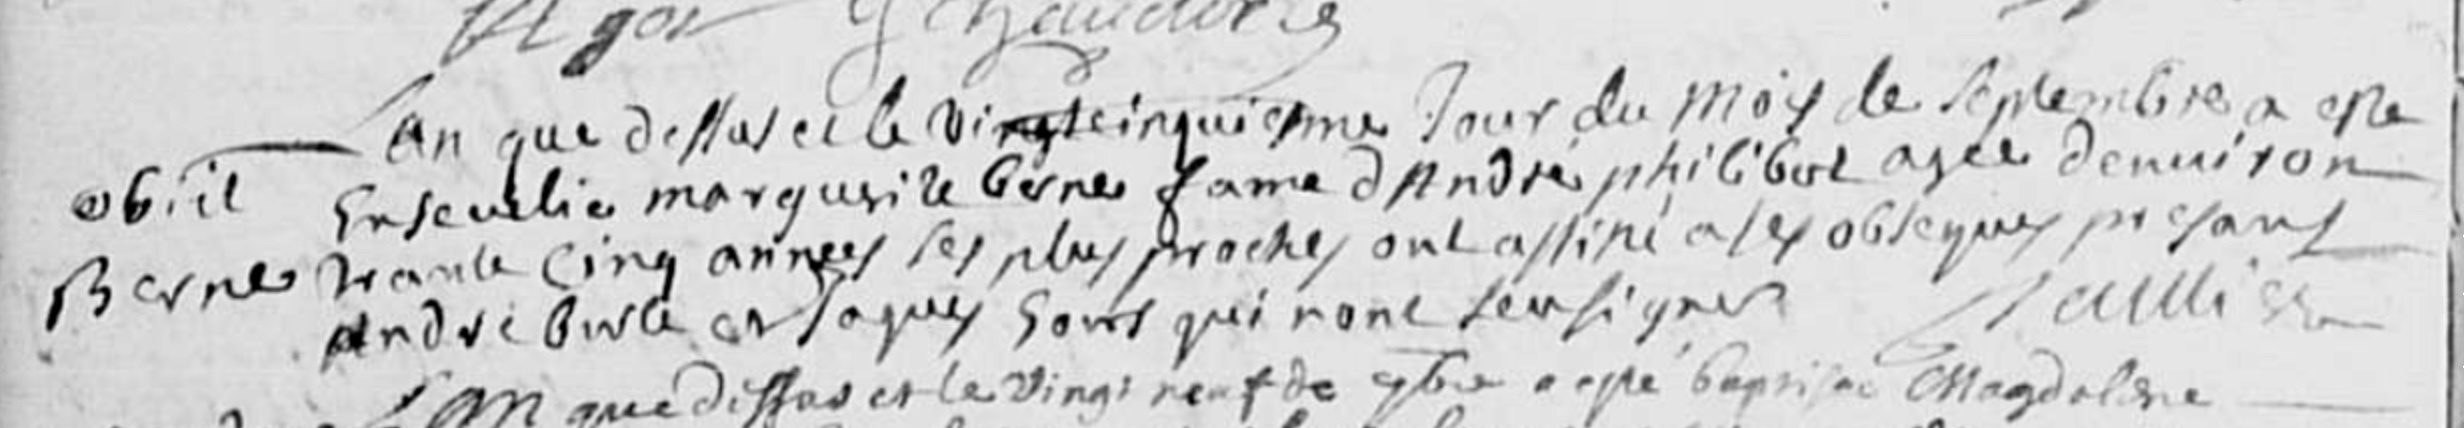 Lan que dessus et le vingtcinquiesme Jour du mois de septembre a este
obiit Ensevelie marguerite berne fame d'André philibert agee denviron
Berne trante cinq annees ses plus proches ont assisté a ses obseques presans
André burle et Jaques qui nont seu signer
Lan que dessus et le vingt neuf de 7bre a esté baptisée Magdeleine